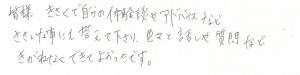 皆様 きさくで自分の体験談やアドバイスなど
ささいな事にも答えて下さい、色々と話しや質問など
きがねなくできてよかったです。